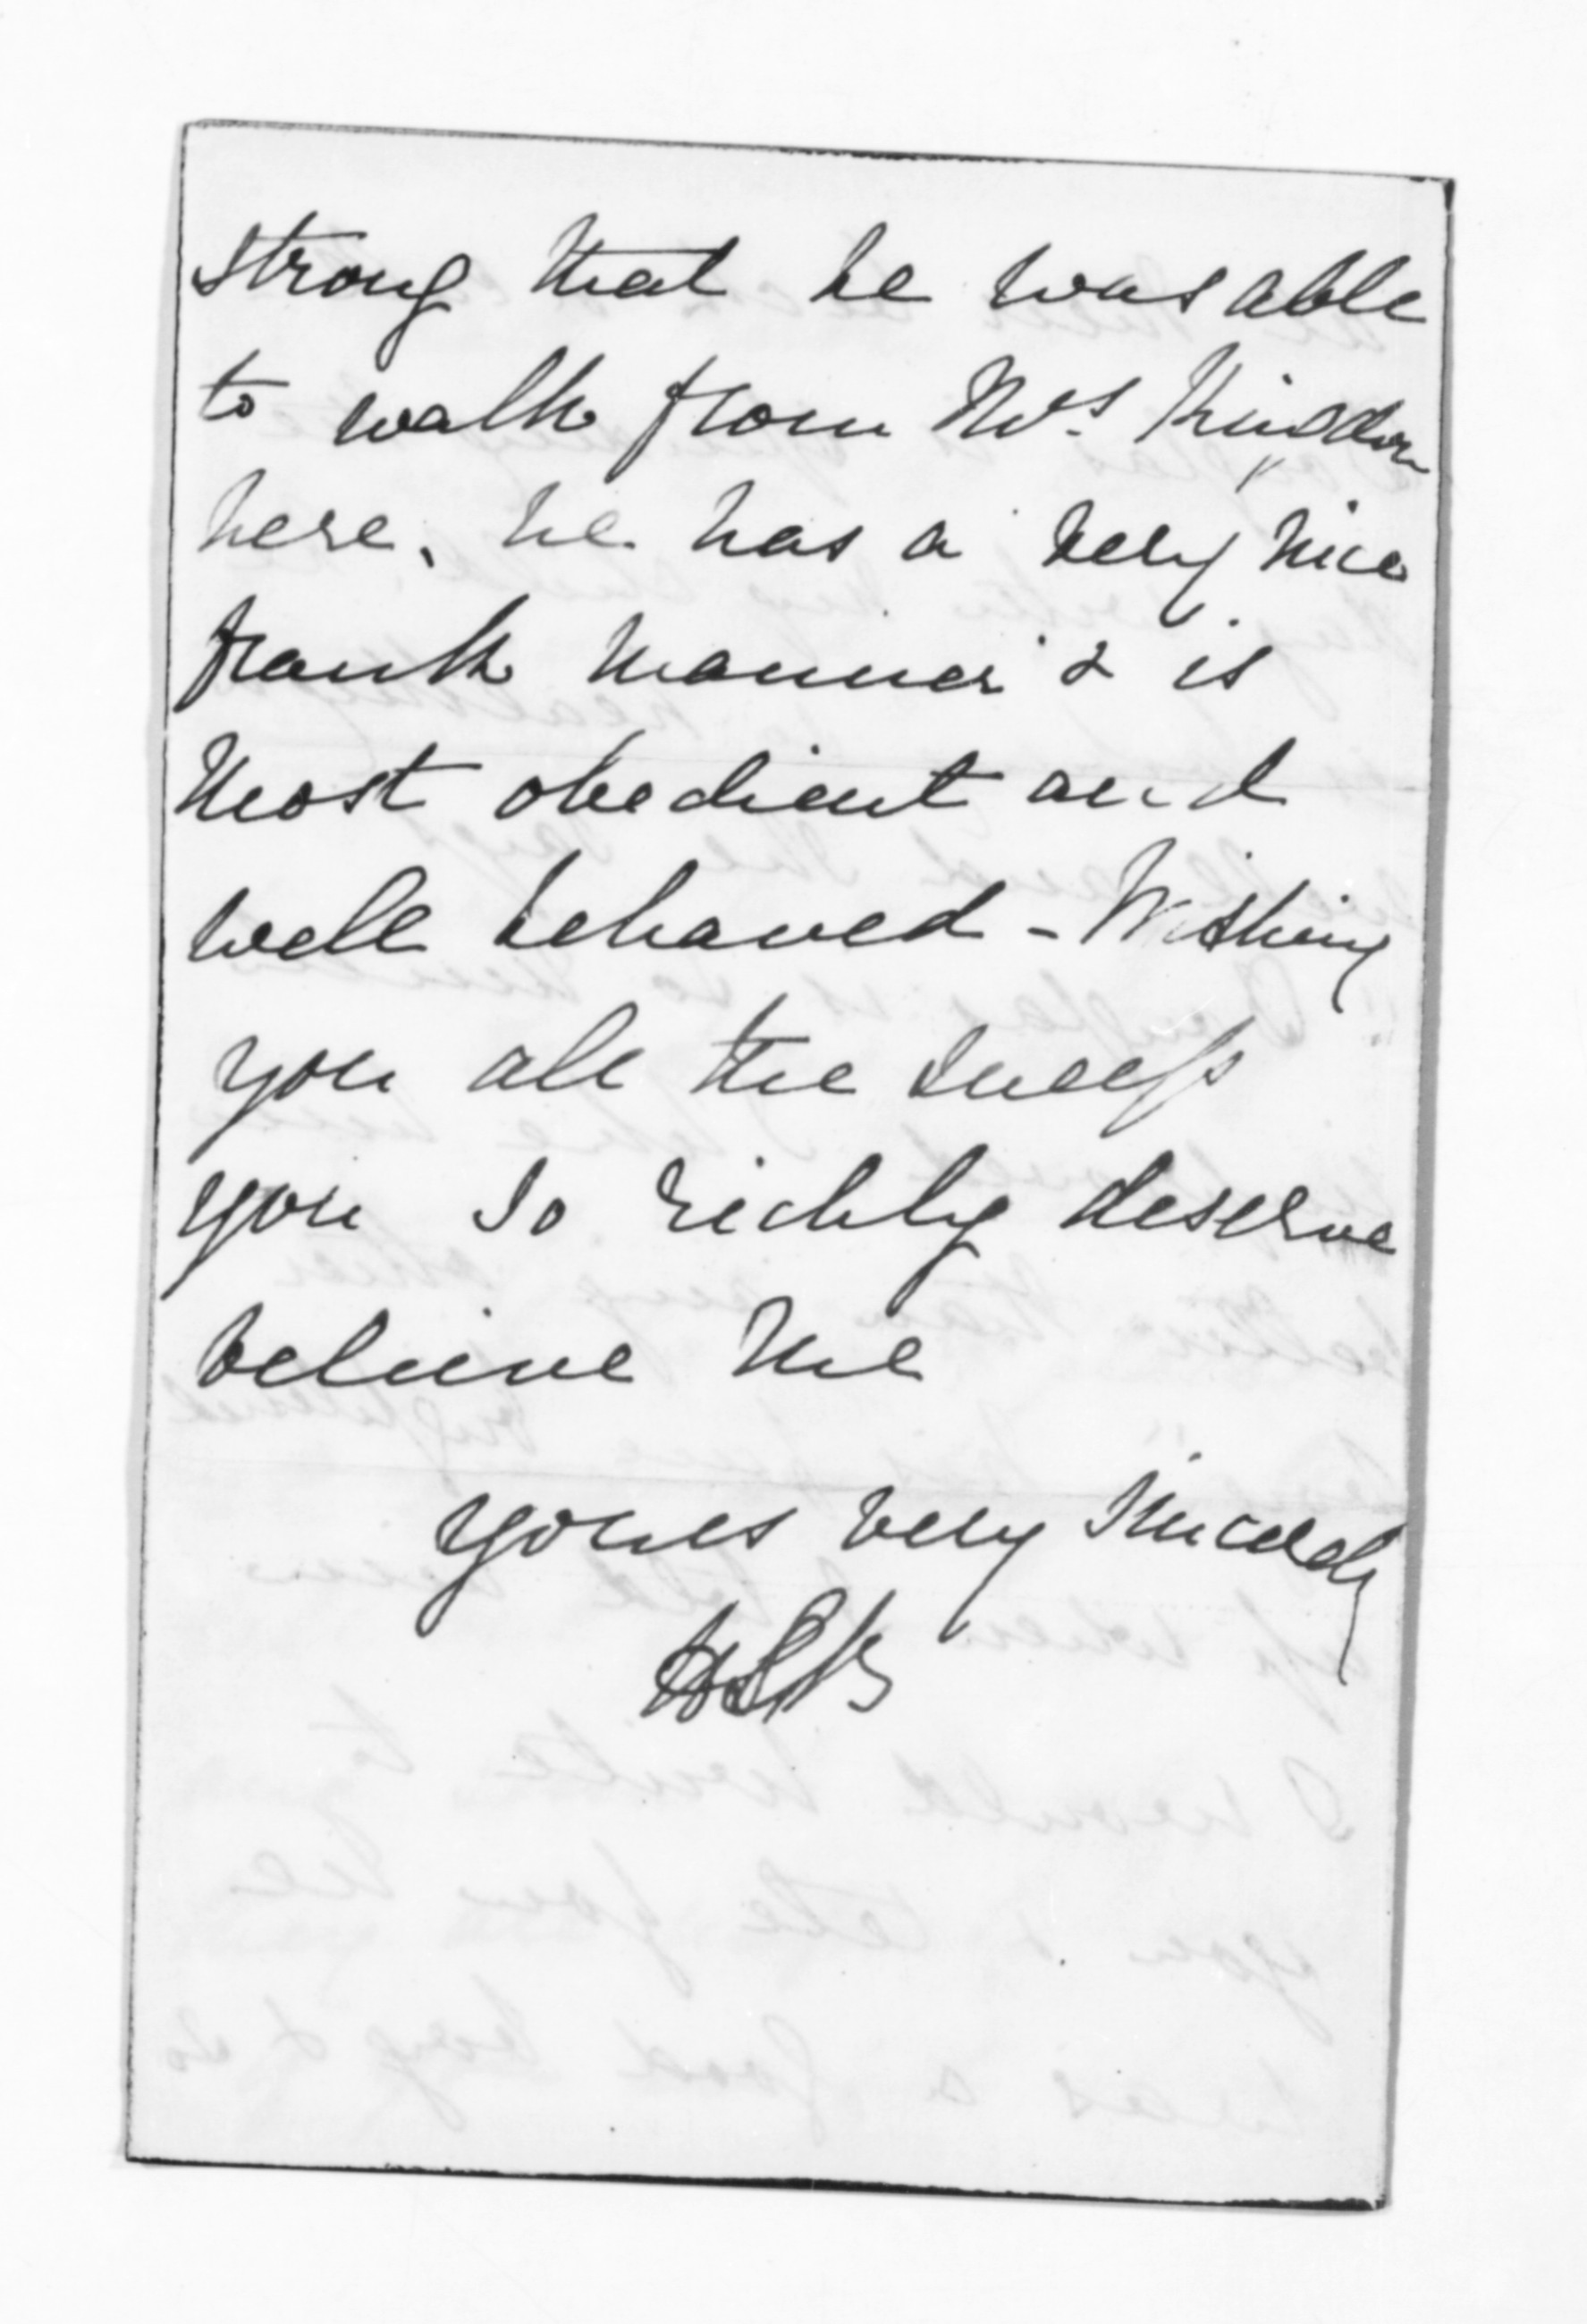 strong that he was able
to walk from Mrs Kingdon
here. he has a very nice
frank manner & is
most obedient and
well behaved - Wishing
you all the success
you so richly deserve
believe me
yours very sincerely